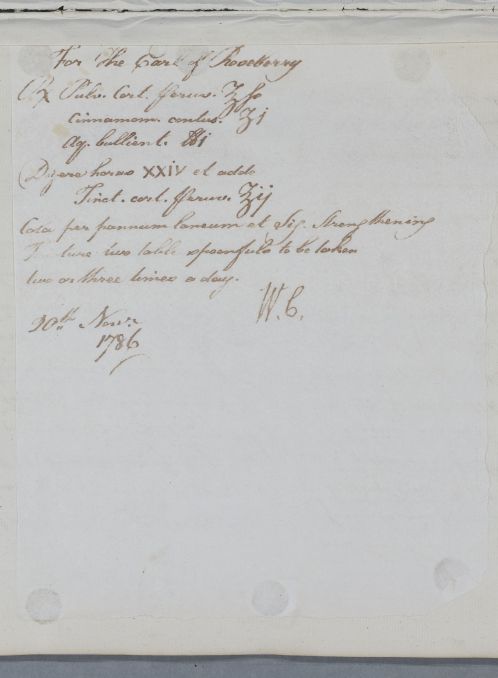 For the Earl of Roseberry
℞ Pulv. Cort. Peruv. ℥ſs
Cinnamom. contus. ʒi
Aq. bullient. ℔i
Digere horas XXIV et adde
Tinct. cort. Peruv. ℥ij
Cola per pannum laneum et Sig. Strengthening
Tincture two table spoonfuls to be taken
two or three times a day.
W.C.
20th Novr.
1786